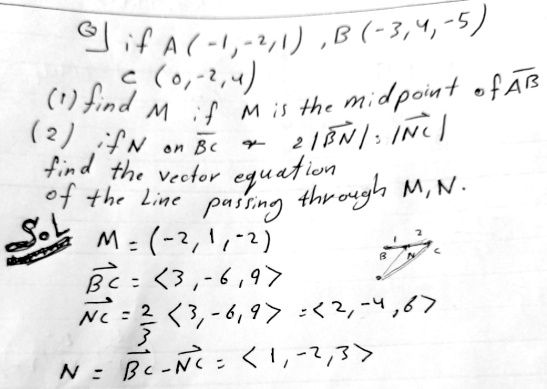 Q] if A(-1,-2,1) , B(-3,4,-5)
C (0,-2,4)
(1) find M if M is the midpoint of A̅B̅
(2) if N on B̅C̅ & 2|BN⃗| = |NC⃗|
find the vector equation
of the Line passing through M,N.
Sol M = (-2,1,-2)
1 2
B N C
BC⃗ = <3,-6,9>
NC⃗ = 2/3 <3,-6,9> = <2,-4,6>
N = BC⃗ - NC⃗ = <1,-2,3>